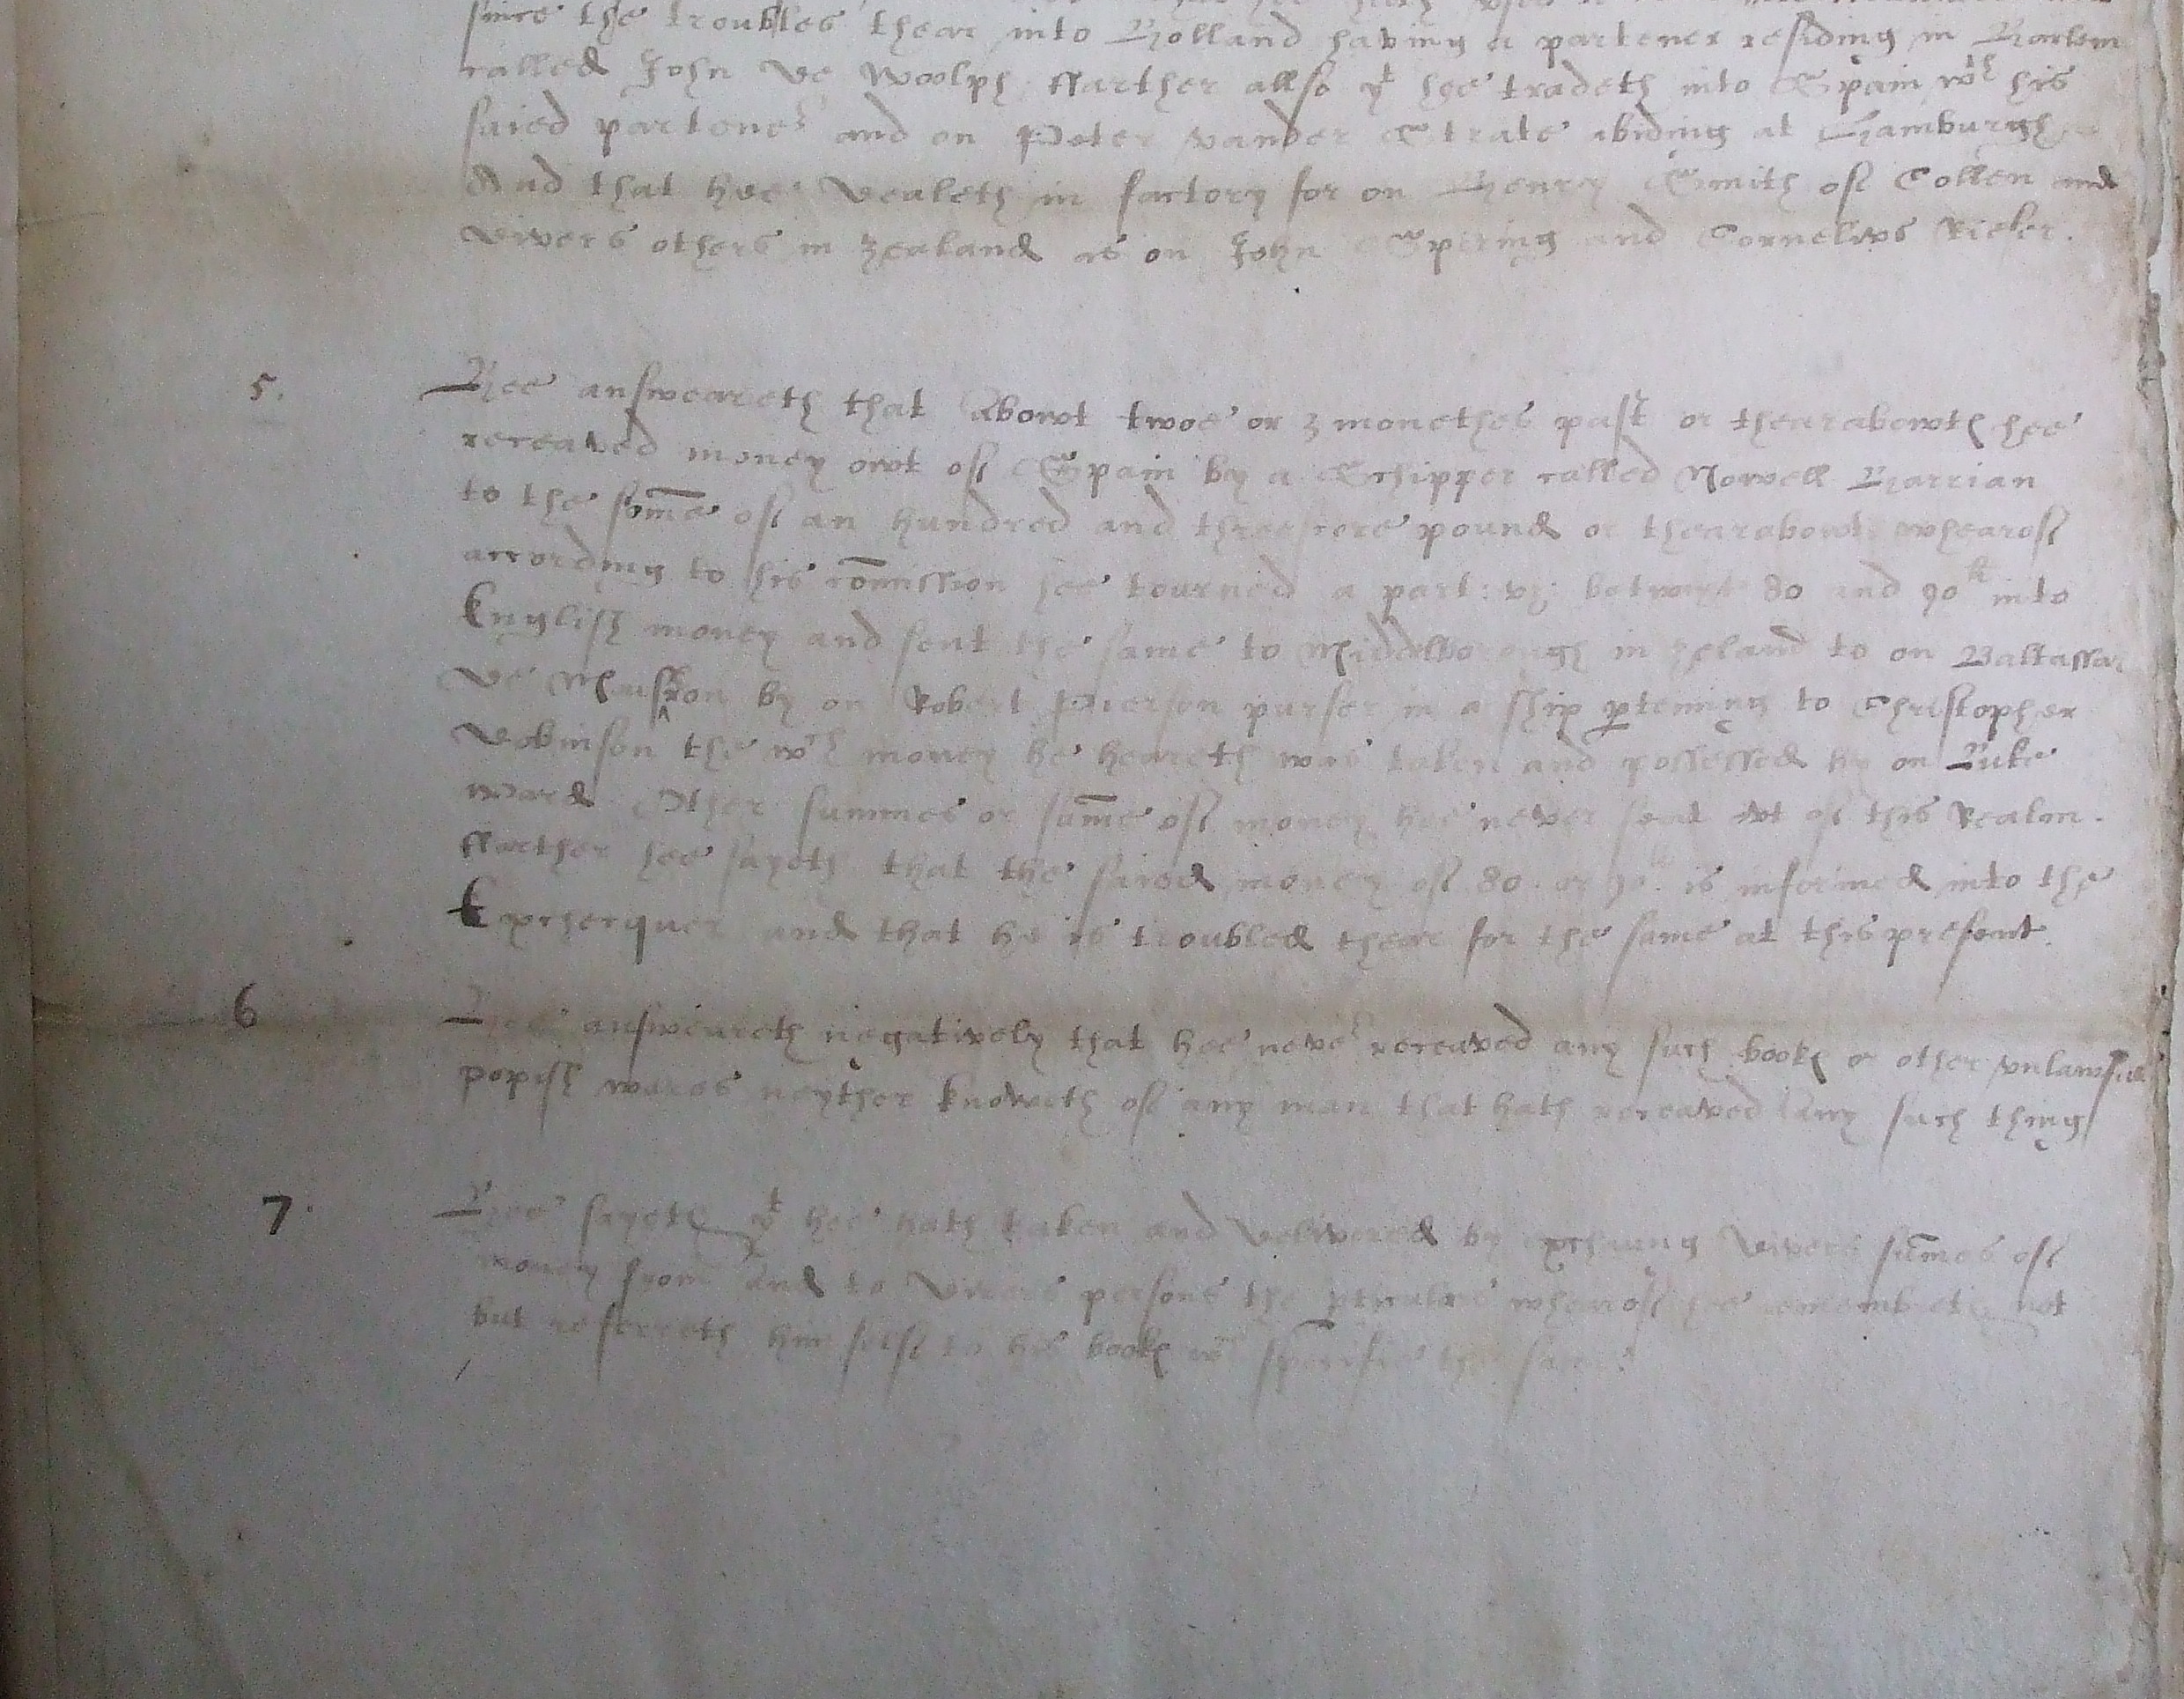 since the troubles thear into Holland having a partener residing in Harlem
called John de Woolph ffarther allso yt hee tradeth into Spain wth his
saied partener and on Peter vander Strate abiding at Hamburgh
And that hee dealeth in factory for on Henry Smith of Collen and
divers others in Zealand as on John Spering and Cornelius
5. Hee answeareth that abowt twoe or 3 monethes past or thearabowts hee
receaved money owt of Spain by a Schipper called Nowell Harrian
to the somme of an hundred and threscore pound or thearabowts whearof
according to his commission hee tourned a part: vz: betwixt 80 and 90 li into
English money and sent the same to Middelborough in Zeland to on Baltassar
de by on Robert Pierson purser in a ship perteining to Christopher
the wch money he heareth was taken and possessed by on Luke
Ward. Other summes or summe of money hee never sent owt of this Realm.
ffarther hee sayeth that the saied money of 80. or 90 li. is informed into the
Exchecquer and that he is troubled thear for the same at this present.
6 Hee answeareth negatively that hee never receaved any such bookes or other vnlawfull
popish wares neyther knoweth of any man that hath receaved any such thing
7. Hee sayeth yt hee hath taken and delivered by exchaung divers summes of
money from and to divers persons the perticulars whearof hee remembreth not
but referreth him self to his bookes wch specifie the same.